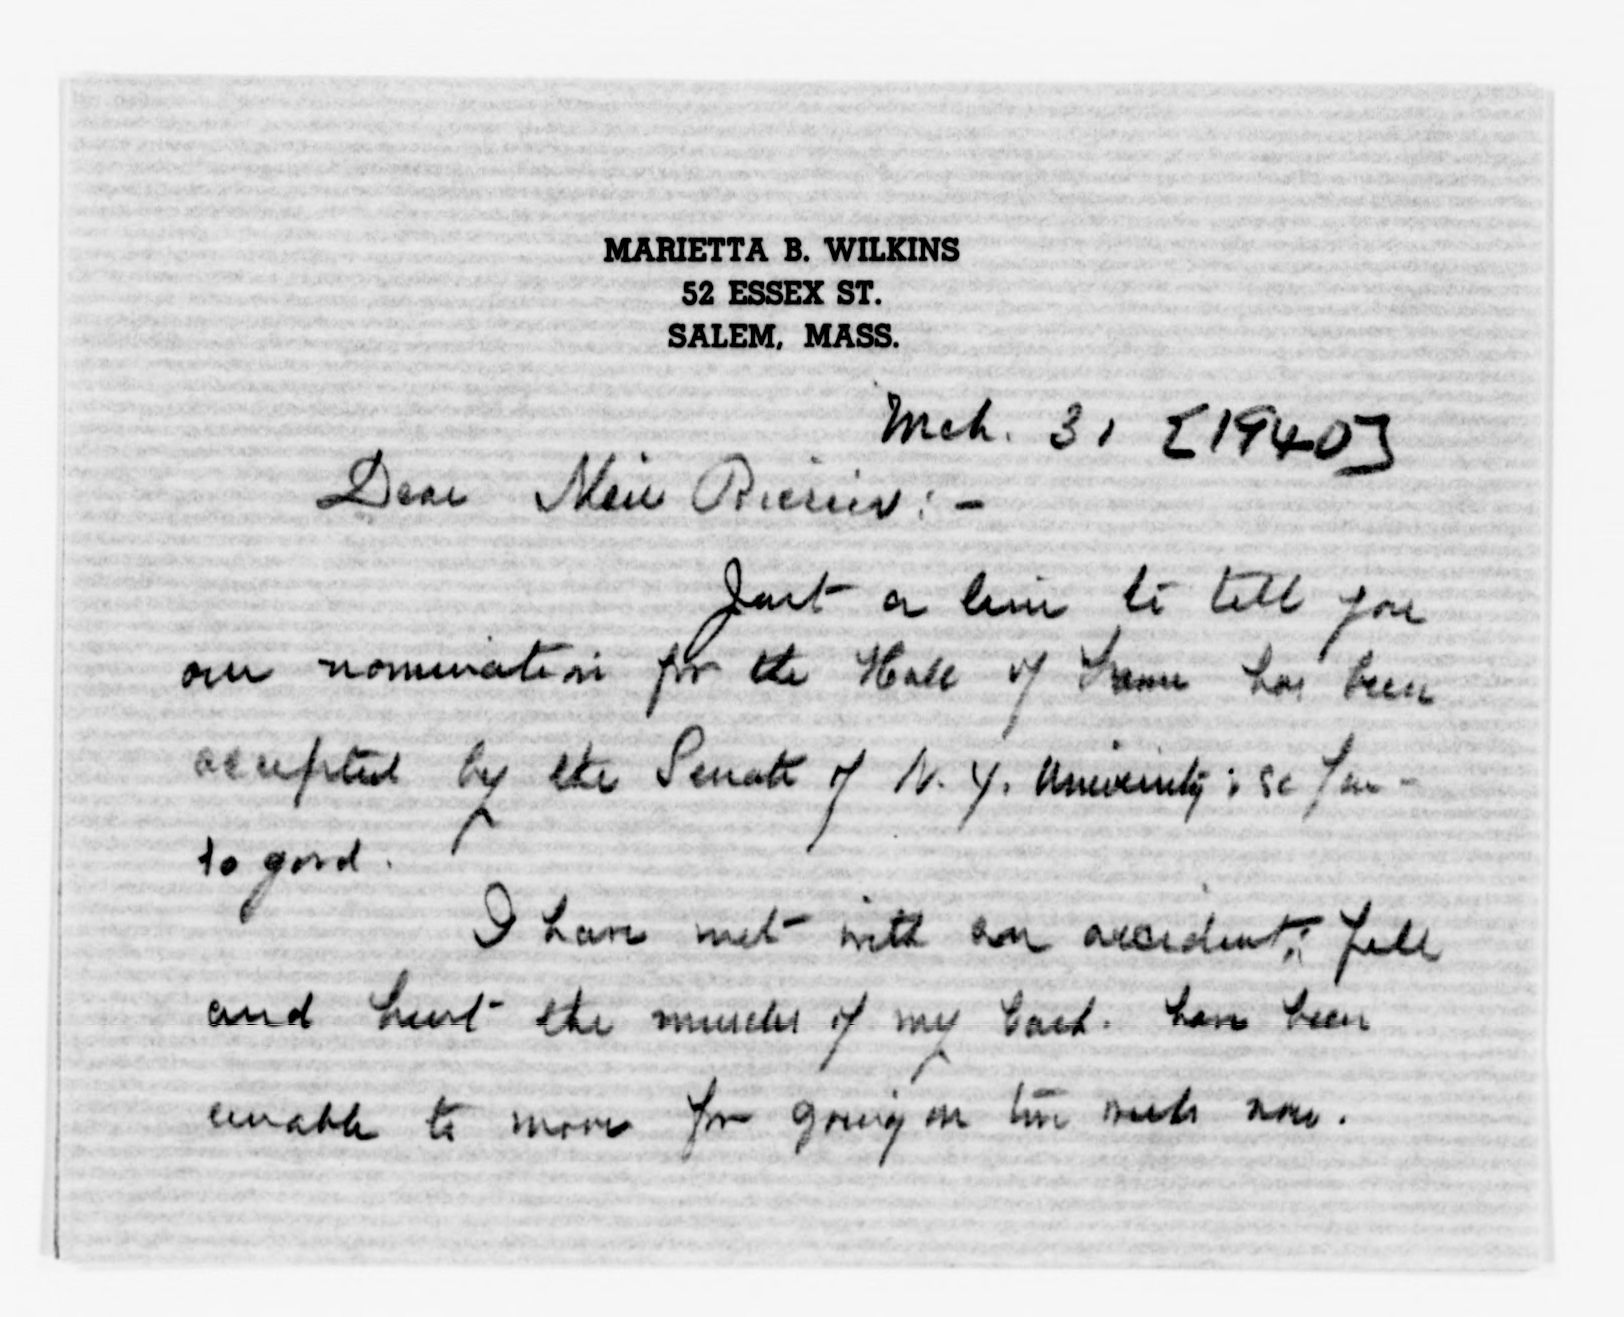 MARIETTA B. WILKINS
52 ESSEX ST.
SALEM, MASS.
Mch. 31 [1940]
Dear Miss :-
Just a line to tell you
our nomination for the Hall of Fame has been
accepted by the Senate of N. Y. University; so far -
so good.
I have met with an accident; fell
and hurt the muscles of my back. have been
unable to move for going on two weeks now.